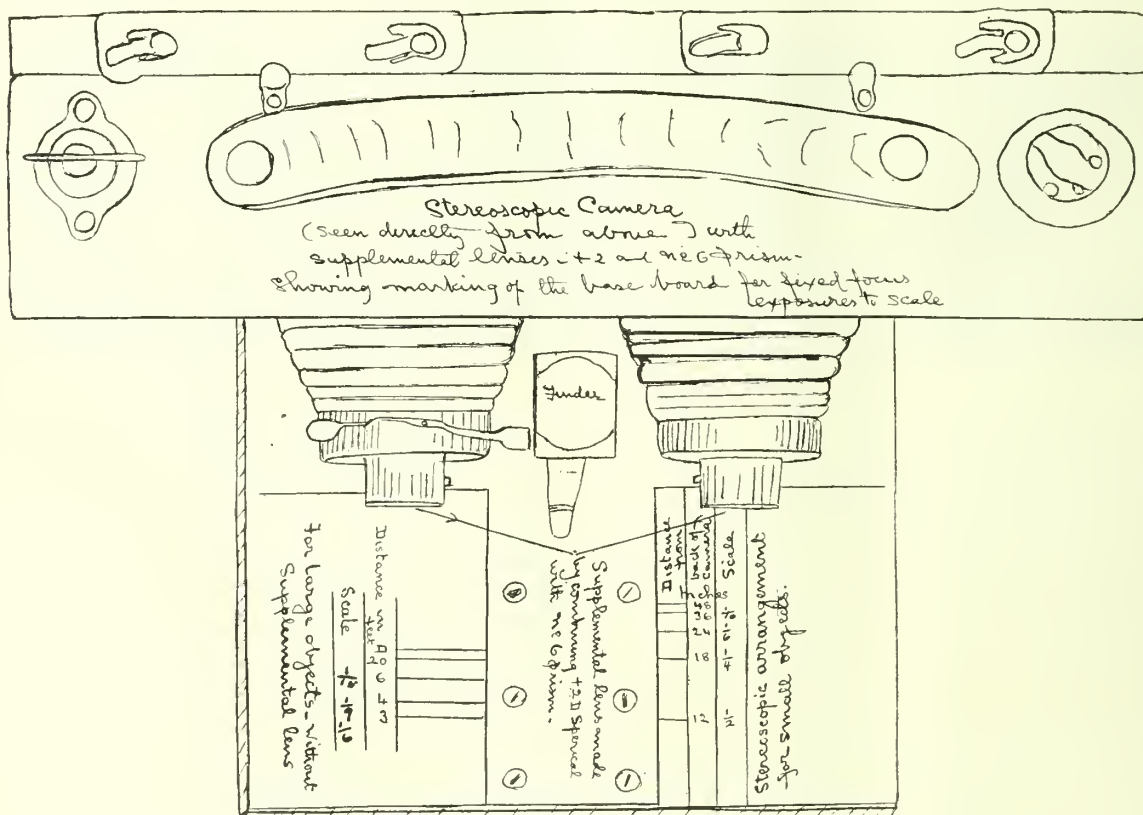 Stereoscopic Camera
(Seen directly from above) with
supplemental lenses +2 and No 6 prism-
Showing marking of the base board for fixed focus
exposures to scale
Finder
For large objects- Without
Supplemental lens
Scale
Distance in
feet
Supplemental lens made
by combining +2D Sperical
with No 6 prism-
Distance
from
back of
camera
25
18
12
Scale
Stereoscopic arrangement
for small objects.